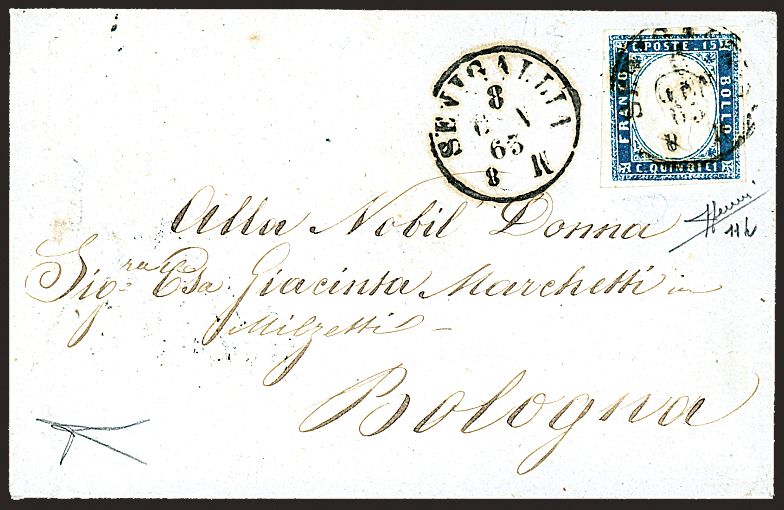 SENIGALLIA
8
GIU
63
8 M
C. POSTE. 15
FRANCO
BOLLO
C. QUINDICI
Alla Nobil Donna
Sig.ra Giacinta Marchetti in
Milzetti
Bologna